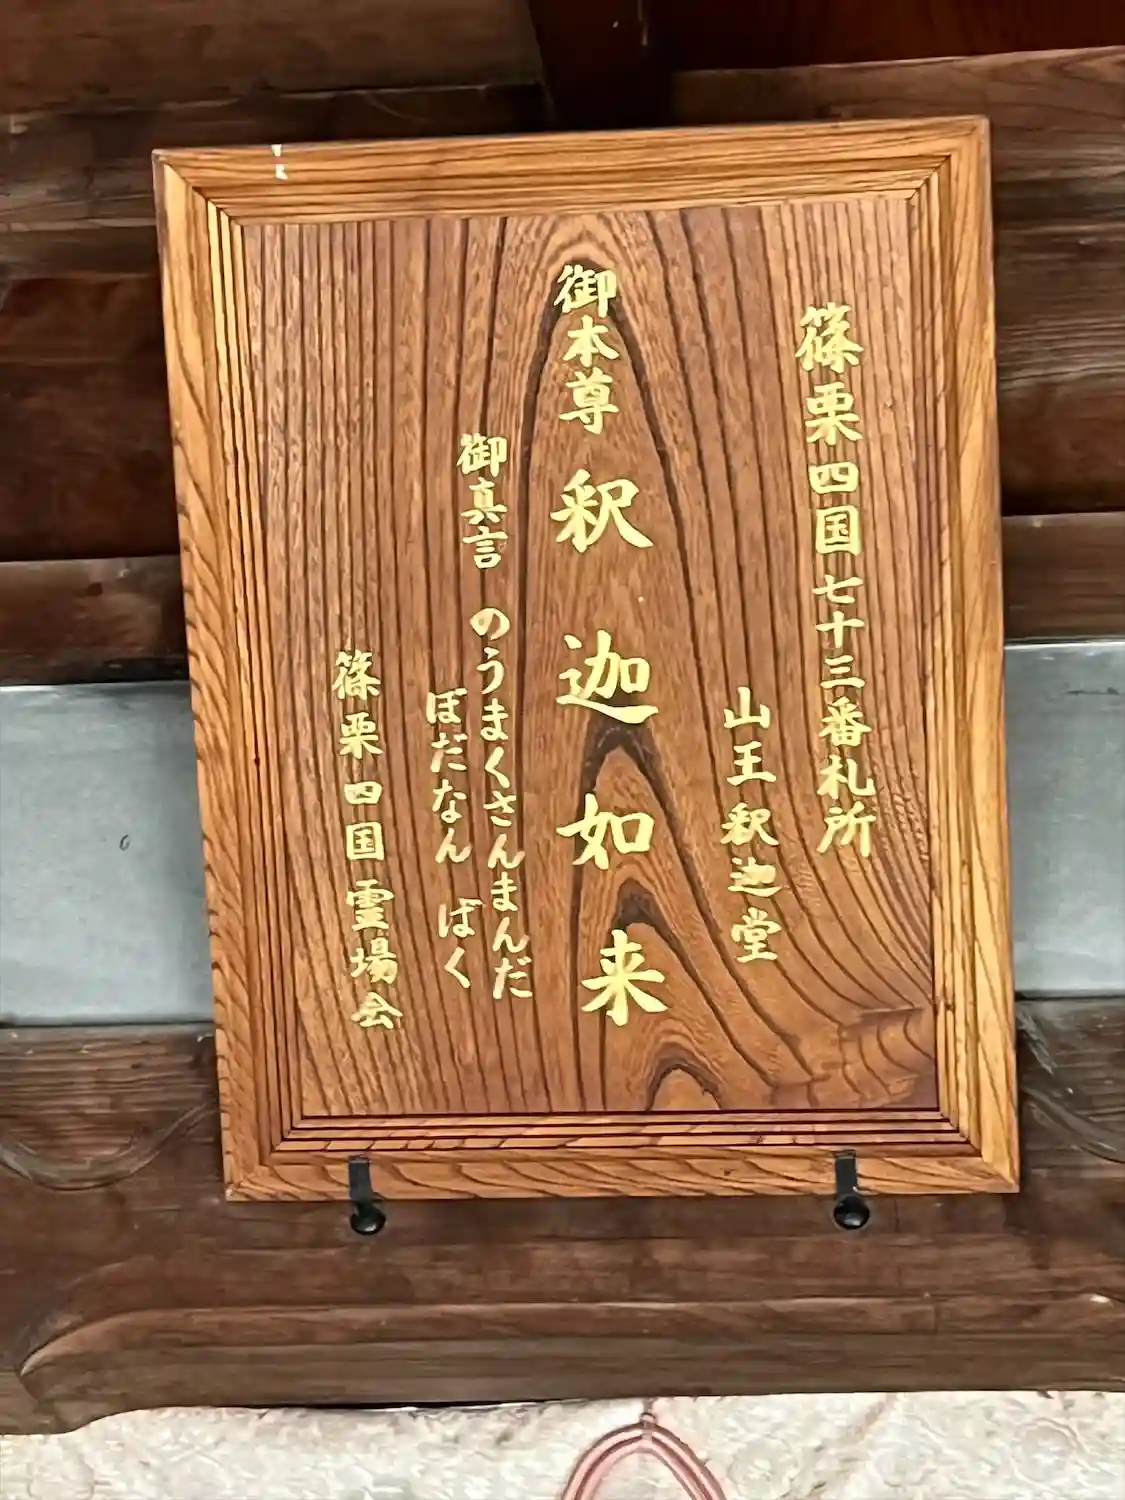 篠栗四国七十三番札所
山王釈迦堂
御本尊 釈迦如来
御真言 のうまくさんまんだ
ぼだなん ばく
篠栗四国霊場会